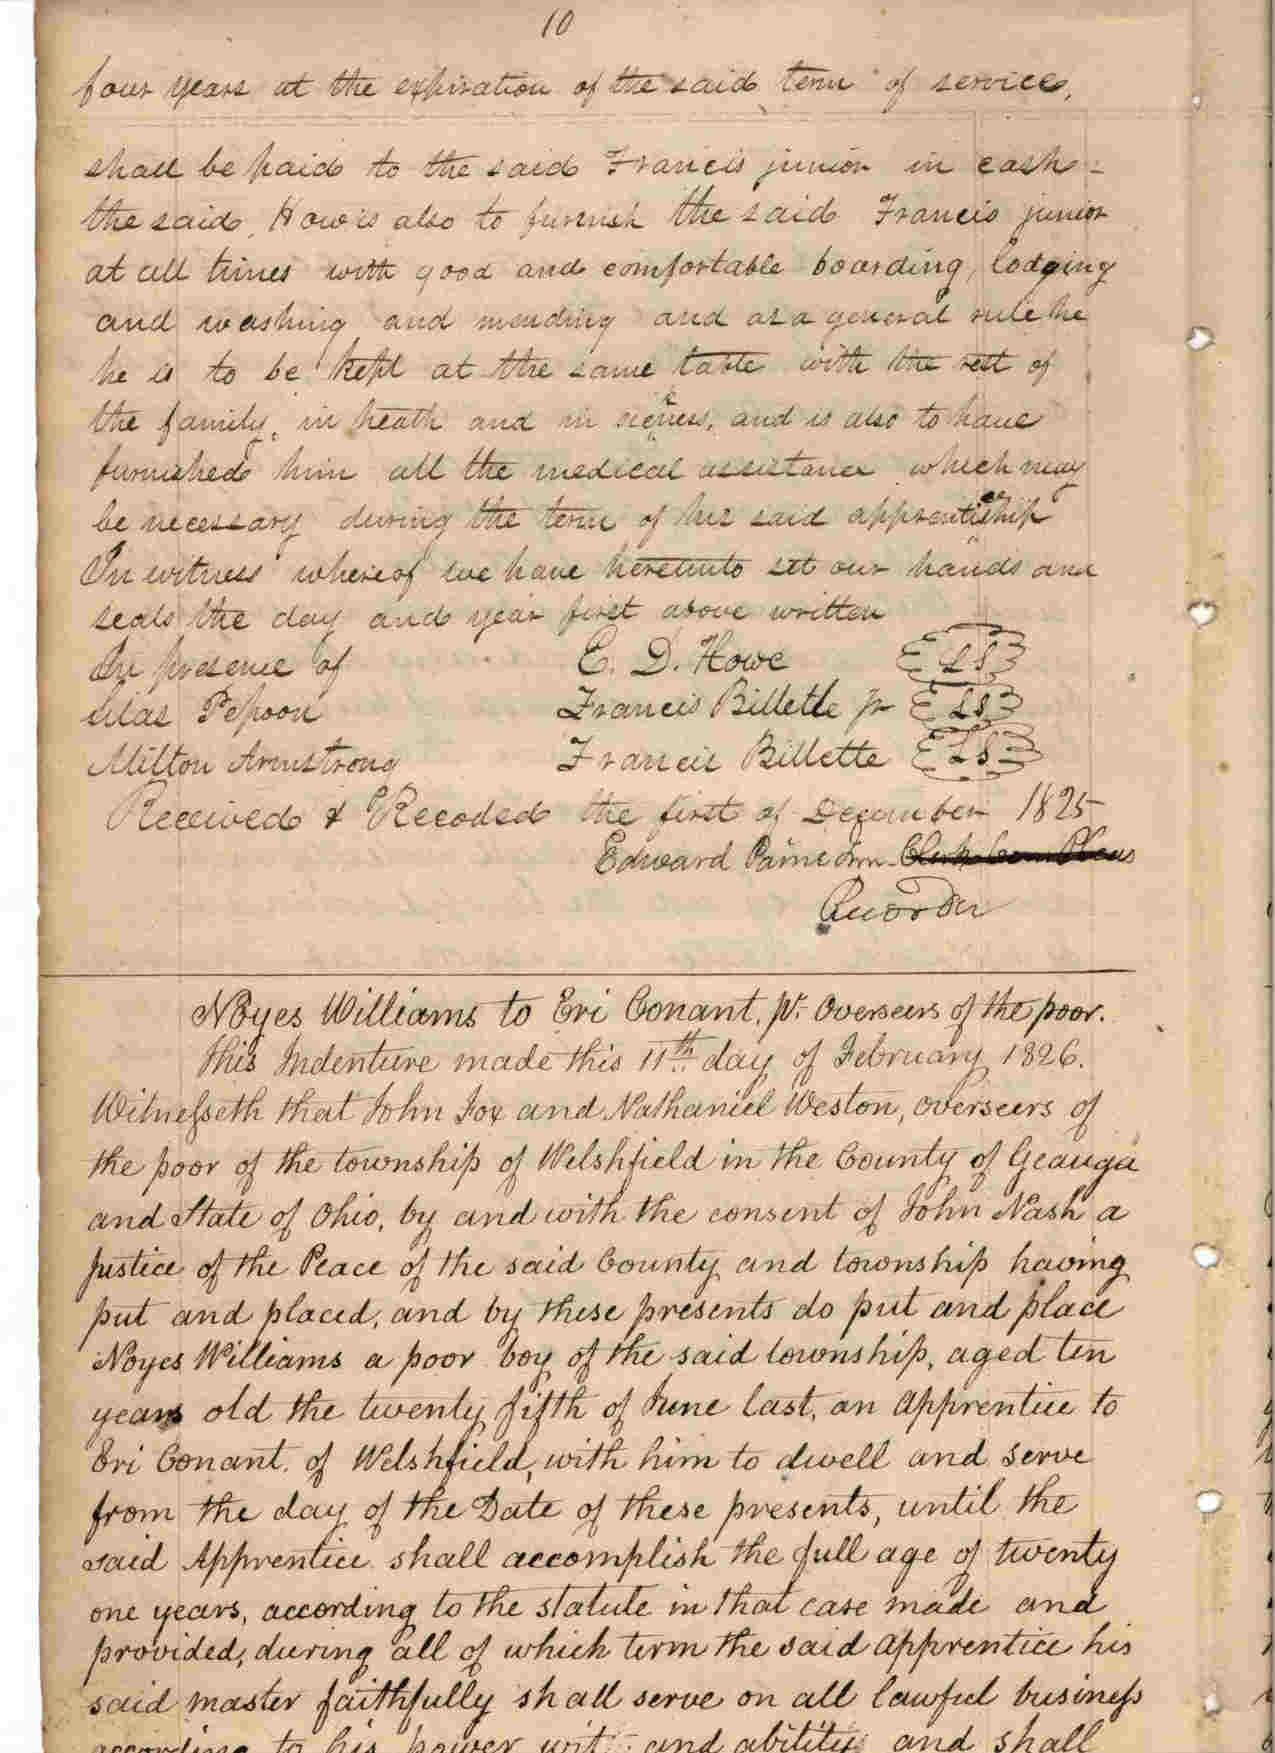 10
four years at the expiration of the said term of service,
shall be paid to the said Francis junior in cash -
the said Howe is also to furnish the said Francis junior
at all times with good and comfortable boarding, lodging
and washing and mending and as a general rule he
he is to be kept at the same table with the rest of
the family, in heath and in sickness, and is also to have
furnished him all the medical assistance which may
be necessary during the term of his said apprenticeship
In witness whereof we have hereunto set our hands and
seals the day and year first above written
In presence of E. D. Howe LS
Silas Pepoon Francis Billette Jr LS
Milton Armstrong Francis Billette LS
Received & Recoded the first of December 1825
Edward Paine Jun. Clerk Com Pleas
Recorder
Noyes Williams to Eri Conant, pr. Overseers of the poor.
This Indenture made this 11th day of February 1826.
Witnesseth that John Fox and Nathaniel Weston, overseers of
the poor of the township of Welshfield in the County of Geauga
and State of Ohio, by and with the consent of John Nash a
justice of the Peace of the said County and township having
put and placed, and by these presents do put and place
Noyes Williams a poor boy of the said township, aged ten
years old the twenty fifth of June last, an apprentice to
Eri Conant of Welshfield, with him to dwell and serve
from the day of the Date of these presents, until the
said Apprentice shall accomplish the full age of twenty
one years, according to the statute in that case made and
provided, during all of which term the said apprentice his
said master faithfully shall serve on all lawful business
according to his power wit and ability and shall